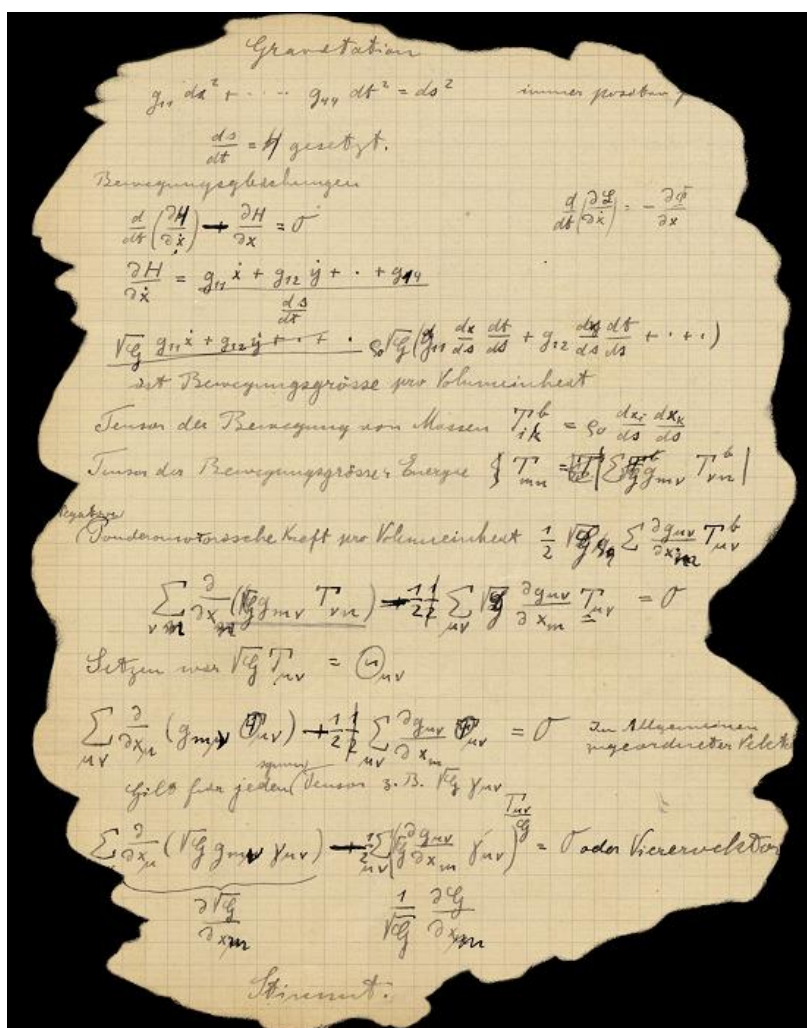 Gravitation
g₁₁ dx² + · · · · g₄₄ dt² = ds² immer positiv
ds/dt = H gesetzt.
Bewegungsgleichungen
d/dt(∂H/∂ẋ) − ∂H/∂x = 0 d/dt(∂L/∂ẋ) = − ∂Φ/∂x
∂H/∂ẋ = (g₁₁ ẋ + g₁₂ ẏ + · + g₁₄)/(ds/dt)
√G g₁₁ẋ + g₁₂ẏ + · + · ρ₀√G(g₁₁ dx/ds dt/ds + g₁₂ dy/ds dt/ds + · + ·)
ist Bewegungsgrösse pro Volumeinheit
Tensor der Bewegung von Massen Tᵇᵢₖ = ρ₀ dxᵢ/ds dxₖ/ds
Tensor der Bewegungsgrösse u. Energie Tₘₙ = √G Σ gₘᵥ Tᵇᵥₙ
Negative
Ponderomotorische Kraft pro Volumeinheit 1/2 √G Σ ∂gμν/∂xₘ Tᵇμν
Σνn ∂/∂xₙ(√G gₘν Tνn) − 1/2 Σμν √G ∂gμν/∂xₘ Tμν = 0
Setzen wir √G Tμν = Θμν
Σμν ∂/∂xμ (gₘν Θμν) − 1/2 Σμν ∂gμν/∂xₘ Θμν = 0 Im Allgemeinen
zugeordneter Vekt
symm
Gilt für jeden Tensor z. B. √G γμν
Σ ∂/∂xμ (√G gₘν γμν) − 1/2 Σμν (√G ∂gμν/∂xₘ γμν) Tμν/G = 0 oder Vierervektor
∂√G/∂xₘ 1/√G ∂G/∂xₘ
Stimmt.